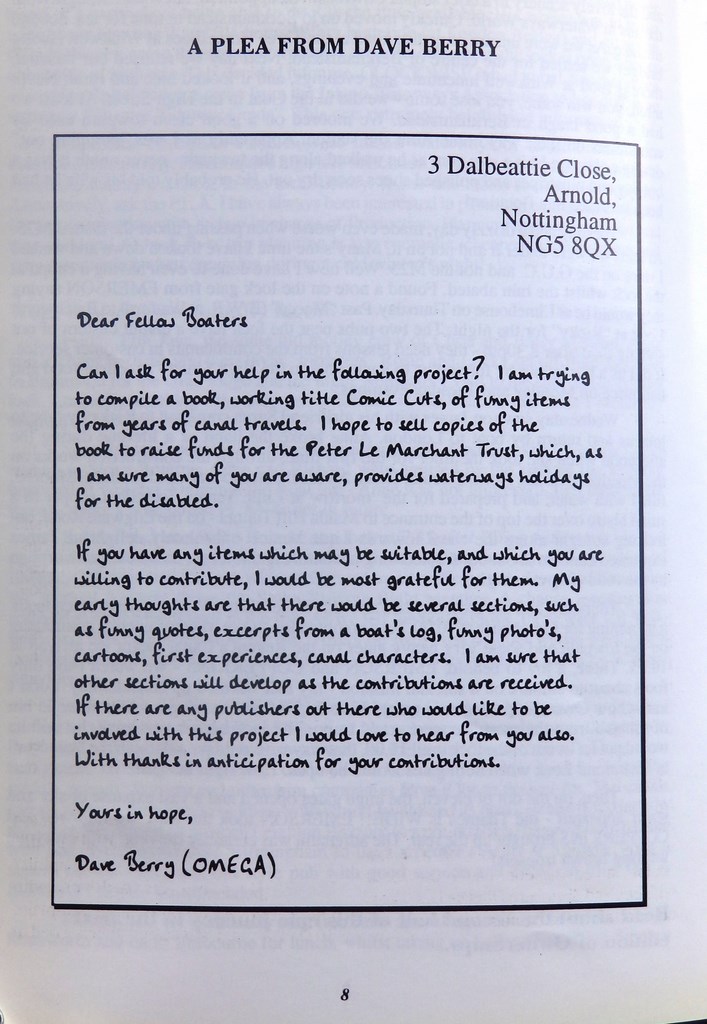 A PLEA FROM DAVE BERRY
3 Dalbeattie Close,
Arnold,
Nottingham
NG5 8QX
Dear Fellow Boaters
Can I ask for your help in the following project? I am trying
to compile a book, working title Comic Cuts, of funny items
from years of canal travels. I hope to sell copies of the
book to raise funds for the Peter Le Marchant Trust, which, as
I am sure many of you are aware, provides waterways holidays
for the disabled.
If you have any items which may be suitable, and which you are
willing to contribute, I would be most grateful for them. My
early thoughts are that there would be several sections, such
as funny quotes, excerpts from a boat's log, funny photo's,
cartoons, first experiences, canal characters. I am sure that
other sections will develop as the contributions are received.
If there are any publishers out there who would like to be
involved with this project I would love to hear from you also.
With thanks in anticipation for your contributions.
Yours in hope,
Dave Berry (OMEGA)
8